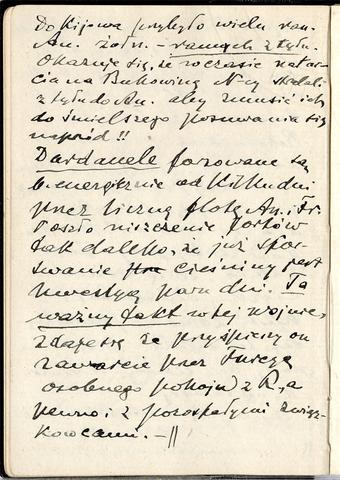 Do Kijowa przybyło wielu ran.
Au. żołn. – rannych z tyłu.
Okazuje się, że w czasie natar-
cia na Bukowinę N-cy strzelali
z tyłu do Au. aby zmusić ich
do śmielszego posuwania się
naprzód!!
Dardanele forsowane są
b. energicznie od kilku dni
przez liczną flotę An. i Fr.
Poszło niszczenie fortów
tak daleko, że już sfor-
sowanie cieśniny jest
kwestyą paru dni. Ta
ważny fakt w tej wojnie,
zdaje się że przyśpieszy on
zawarcie przez Turcyę
osobnego pokoju z R., a
pewno i z pozostałymi związ-
kowcami. –||